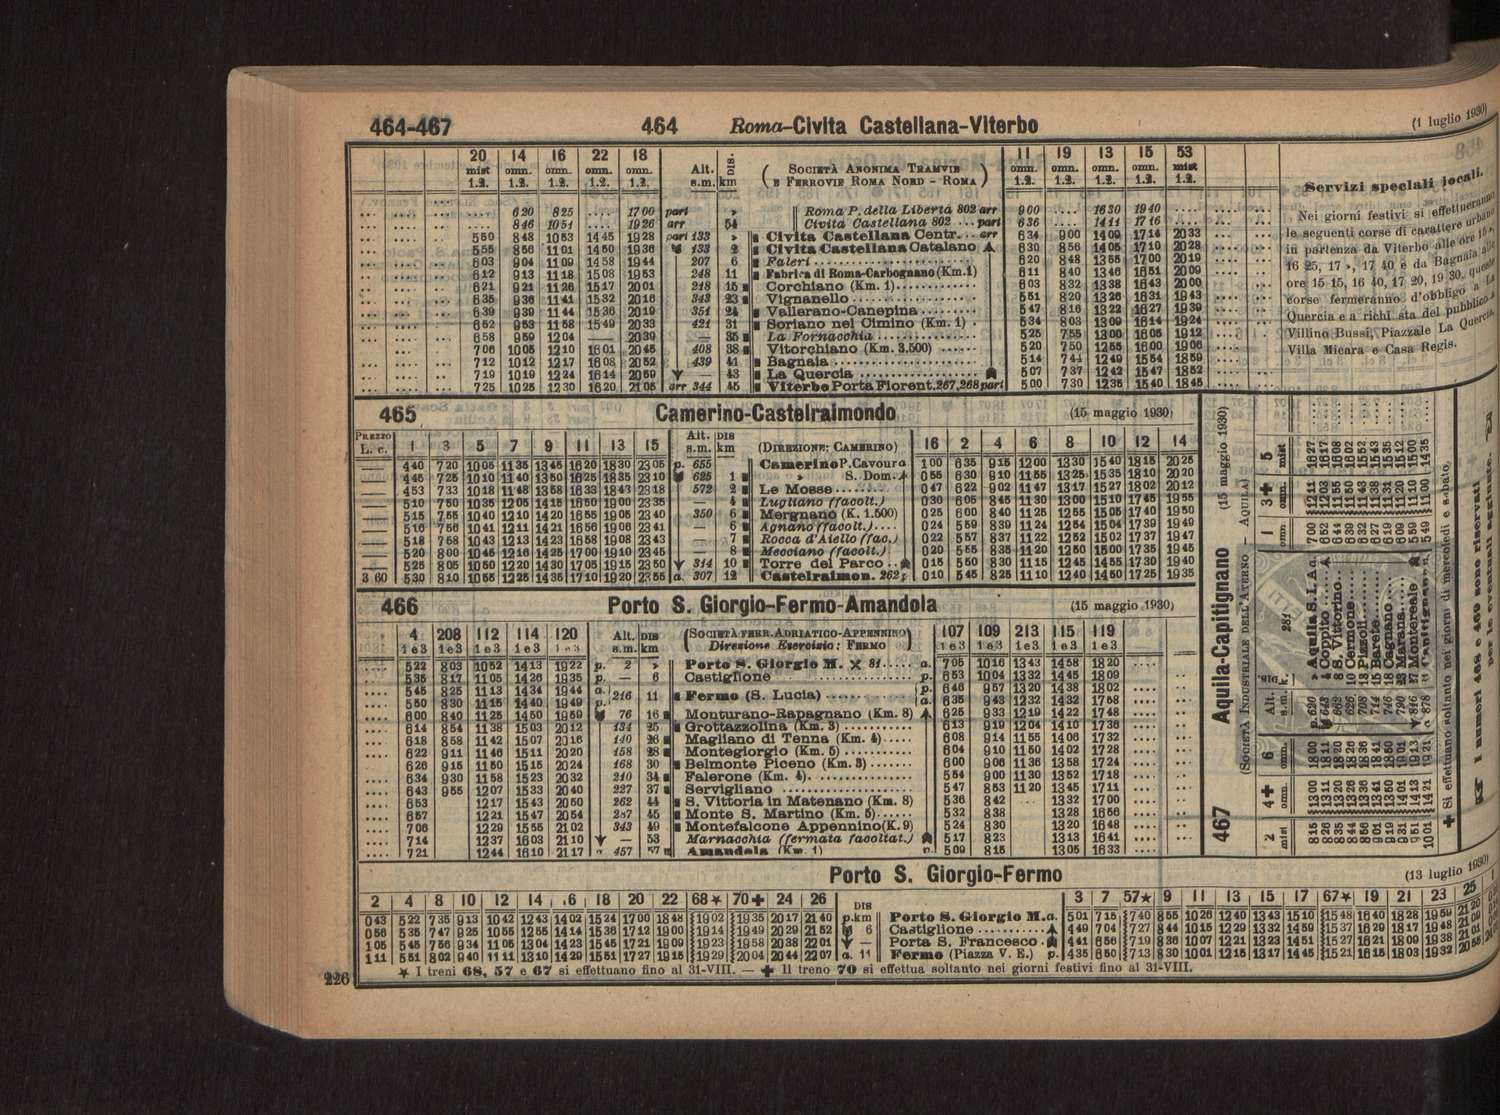 464-467 464 Roma-Civita Castellana-Viterbo (1 luglio 1930)
20 14 16 22 18 Alt. DIS. (SOCIETÀ ANONIMA TRAMVIE 11 19 13 15 53
mist omn. omn. omn. omn. s.m. km E FERROVIE ROMA NORD - ROMA) omn. omn. omn. omn. mist
1.2. 1.2. 1.2. 1.2. 1.2. 1.2. 1.2. 1.2. 1.2. 1.2.
.... 6 20 8 25 .... 17 00 part » Roma P. della Libertà 802 arr 9 00 .... 16 30 19 40
.... 8 46 10 51 .... 19 26 arr 54 Civita Castellana 802 ... part 6 36 .... 14 11 17 16
5 50 8 48 10 53 14 45 19 28 part 133 » Civita Castellana Centr. .. arr 6 34 9 00 14 09 17 14 20 33
5 55 8 56 11 01 14 50 19 36 133 2 Civita Castellana Catalano 6 30 8 56 14 05 17 10 20 28
6 03 9 04 11 09 14 58 19 44 207 6 Faleri 6 20 8 48 13 55 17 00 20 19
6 12 9 13 11 18 15 08 19 53 248 11 Fabrica di Roma-Carbognano (Km.1) 6 11 8 40 13 46 16 51 20 09
6 21 9 21 11 26 15 17 20 01 218 15 Corchiano (Km. 1) 6 03 8 32 13 38 16 43 20 00
6 35 9 36 11 41 15 32 20 16 343 23 Vignanello 5 51 8 20 13 26 16 31 19 43
6 39 9 39 11 44 15 36 20 19 351 24 Vallerano-Canepina 5 47 8 16 13 22 16 27 19 39
6 52 9 53 11 58 15 49 20 33 421 31 Soriano nel Cimino (Km. 1) 5 34 8 03 13 09 16 14 19 24
6 58 9 59 12 04 — 20 39 — 35 La Fornacchia 5 25 7 55 13 00 16 05 19 12
7 06 10 05 12 10 16 01 20 45 408 38 Vitorchiano (Km. 3.500) 5 20 7 50 12 55 16 00 19 06
7 12 10 12 12 17 16 08 20 52 439 41 Bagnaia 5 14 7 44 12 49 15 54 18 59
7 19 10 19 12 24 16 14 20 59 — 43 La Quercia 5 07 7 37 12 42 15 47 18 52
7 25 10 25 12 30 16 20 21 05 arr 344 45 Viterbo Porta Fiorent. 267, 268 part 5 00 7 30 12 35 15 40 18 45
Servizi speciali locali.
Nei giorni festivi si effettueranno
le seguenti corse di carattere urbano
in partenza da Viterbo alle ore 15 »,
16 25, 17 », 17 40 e da Bagnaia alle
ore 15 15, 16 40, 17 20, 19 30, queste
corse fermeranno d'obbligo a La
Quercia e a richiesta del pubblico a
Villino Bussi, Piazzale La Quercia,
Villa Micara e Casa Regis.
465 Camerino-Castelraimondo (15 maggio 1930)
PREZZO L. c. 1 3 5 7 9 11 13 15 Alt. s.m. DIS km (DIREZIONE: CAMERINO) 16 2 4 6 8 10 12 14
4 40 7 20 10 05 11 35 13 45 16 20 18 30 23 05 p. 655 Camerino P. Cavour a 1 00 6 35 9 15 12 00 13 30 15 40 18 15 20 25
4 45 7 25 10 10 11 40 13 50 16 25 18 35 23 10 625 1 » S. Dom. 0 55 6 30 9 10 11 55 13 25 15 35 18 10 20 20
4 53 7 33 10 18 11 48 13 58 16 33 18 43 23 18 572 2 Le Mosse 0 47 6 22 9 02 11 47 13 17 15 27 18 02 20 12
5 10 7 50 10 35 12 05 14 15 16 50 19 00 23 35 — 4 Lugliano (facolt.) 0 30 6 05 8 45 11 30 13 00 15 10 17 45 19 55
5 15 7 55 10 40 12 10 14 20 16 55 19 05 23 40 350 6 Mergnano (K. 1.500) 0 25 6 00 8 40 11 25 12 55 15 05 17 40 19 50
5 16 7 56 10 41 12 11 14 21 16 56 19 06 23 41 — 6 Agnano (facolt.) 0 24 5 59 8 39 11 24 12 54 15 04 17 39 19 49
5 18 7 58 10 43 12 13 14 23 16 58 19 08 23 43 — 7 Rocca d'Aiello (fac.) 0 22 5 57 8 37 11 22 12 52 15 02 17 37 19 47
5 20 8 00 10 45 12 15 14 25 17 00 19 10 23 45 — 8 Mecciano (facolt.) 0 20 5 55 8 35 11 20 12 50 15 00 17 35 19 45
5 25 8 05 10 50 12 20 14 30 17 05 19 15 23 50 314 10 Torre del Parco 0 15 5 50 8 30 11 15 12 45 14 55 17 30 19 40
3 60 5 30 8 10 10 55 12 25 14 35 17 10 19 20 23 55 a. 307 12 Castelraimon. 262 p 0 10 5 45 8 25 11 10 12 40 14 50 17 25 19 35
466 Porto S. Giorgio-Fermo-Amandola (15 maggio 1930)
4 208 112 114 120 Alt. DIS (SOCIETÀ FERR. ADRIATICO-APPENNINO) 107 109 213 115 119
1 e 3 1 e 3 1 e 3 1 e 3 1 e 3 s.m. km Direzione Esercizio: FERMO 1 e 3 1 e 3 1 e 3 1 e 3 1 e 3
5 22 8 03 10 52 14 13 19 22 p. 2 » Porto S. Giorgio M. 81 a. 7 05 10 16 13 43 14 58 18 20
5 35 8 17 11 05 14 26 19 35 p. — 6 Castiglione p. 6 53 10 04 13 32 14 45 18 09
5 45 8 25 11 13 14 34 19 44 a. 216 11 Fermo (S. Lucia) p. 6 46 9 57 13 20 14 38 18 02
5 50 8 30 11 15 14 40 19 49 p. a. 6 35 9 43 12 32 14 32 17 58
6 00 8 40 11 25 14 50 19 59 76 16 Monturano-Rapagnano (Km. 8) 6 25 9 33 12 19 14 22 17 48
6 14 8 54 11 38 15 03 20 12 134 25 Grottazzolina (Km. 3) 6 13 9 19 12 04 14 10 17 36
6 18 8 58 11 42 15 07 20 16 140 26 Magliano di Tenna (Km. 4) 6 08 9 14 11 55 14 06 17 32
6 22 9 11 11 46 15 11 20 20 158 28 Montegiorgio (Km. 5) 6 04 9 10 11 50 14 02 17 28
6 26 9 15 11 50 15 15 20 24 168 30 Belmonte Piceno (Km. 3) 6 00 9 06 11 36 13 58 17 24
6 34 9 30 11 58 15 23 20 32 210 34 Falerone (Km. 4) 5 54 9 00 11 30 13 52 17 18
6 43 9 55 12 07 15 33 20 40 227 37 Servigliano 5 47 8 53 11 20 13 45 17 11
6 53 12 17 15 43 20 50 262 44 S. Vittoria in Matenano (Km. 8) 5 36 8 42 ... 13 32 17 00
6 57 12 21 15 47 20 54 287 45 Monte S. Martino (Km. 5) 5 32 8 38 13 28 16 56
7 06 12 29 15 55 21 02 343 49 Montefalcone Appennino (K. 9) 5 24 8 30 13 20 16 48
7 14 12 37 16 03 21 10 — 53 Marnacchia (fermata facoltat.) 5 17 8 23 13 13 16 41
7 21 12 44 16 10 21 17 a. 457 57 Amandola (Km. 1) p. 5 09 8 15 13 05 16 33
467 Aquila-Capitignano (15 maggio 1930)
(SOCIETÀ INDUSTRIALE DELL'ATERNO - AQUILA)
2 4✚ 6 Alt. DIS. 281 1 3✚ 5
mist omn. omn. s.m. k. omn. omn. mist
8 15 13 00 18 00 p. 620 » Aquila S.I.A. a. 7 00 12 11 16 27
8 26 13 11 18 11 643 4 Coppito 6 52 12 03 16 17
8 35 13 20 18 20 662 8 S. Vittorino 6 44 11 55 16 08
8 44 13 26 18 26 626 10 Cermone 6 39 11 50 16 02
8 56 13 36 18 36 708 13 Pizzoli 6 32 11 43 15 52
9 01 13 41 18 41 714 15 Barete 6 27 11 38 15 43
9 19 13 50 18 50 746 18 Cagnano 6 19 11 31 15 35
9 31 14 01 19 01 790 23 Marana 6 09 11 20 15 12
9 51 14 13 19 13 816 27 Montereale 5 59 11 10 15 00
10 01 14 21 19 21 a. 878 Capitignano p. 5 49 11 00 14 35
✚ Si effettuano soltanto nei giorni di mercoledì e sabato.
I numeri 468 e 469 sono riservati
per le eventuali aggiunte.
Porto S. Giorgio-Fermo (13 luglio 1930)
2 4 8 10 12 14 16 18 20 22 68★ 70✚ 24 26 DIS 3 7 57★ 9 11 13 15 17 67★ 19 21 23 25
0 43 5 22 7 35 9 13 10 42 12 43 14 02 15 24 17 00 18 48 19 02 19 35 20 17 21 40 p. km Porto S. Giorgio M. a. 5 01 7 15 7 40 8 55 10 26 12 40 13 43 15 10 15 48 16 40 18 28 19 59 21 20
0 56 5 35 7 47 9 25 10 55 12 55 14 14 15 36 17 12 19 00 19 14 19 49 20 29 21 52 6 Castiglione 4 49 7 04 7 27 8 44 10 15 12 29 13 32 14 59 15 37 16 29 18 17 19 48 21 09
1 05 5 45 7 56 9 34 11 05 13 04 14 23 15 45 17 21 19 09 19 23 19 58 20 38 22 01 — Porta S. Francesco 4 41 6 56 7 19 8 36 10 07 12 21 13 23 14 51 15 27 16 21 18 09 19 38 21 01
1 11 5 51 8 02 9 40 11 11 13 10 14 29 15 51 17 27 19 15 19 29 20 04 20 44 22 07 a. 11 Fermo (Piazza V. E.) p. 4 35 6 50 7 13 8 30 10 01 12 15 13 17 14 45 15 21 16 15 18 03 19 32 20 55
★ I treni 68, 57 e 67 si effettuano fino al 31-VIII. — ✚ Il treno 70 si effettua soltanto nei giorni festivi fino al 31-VIII.
226